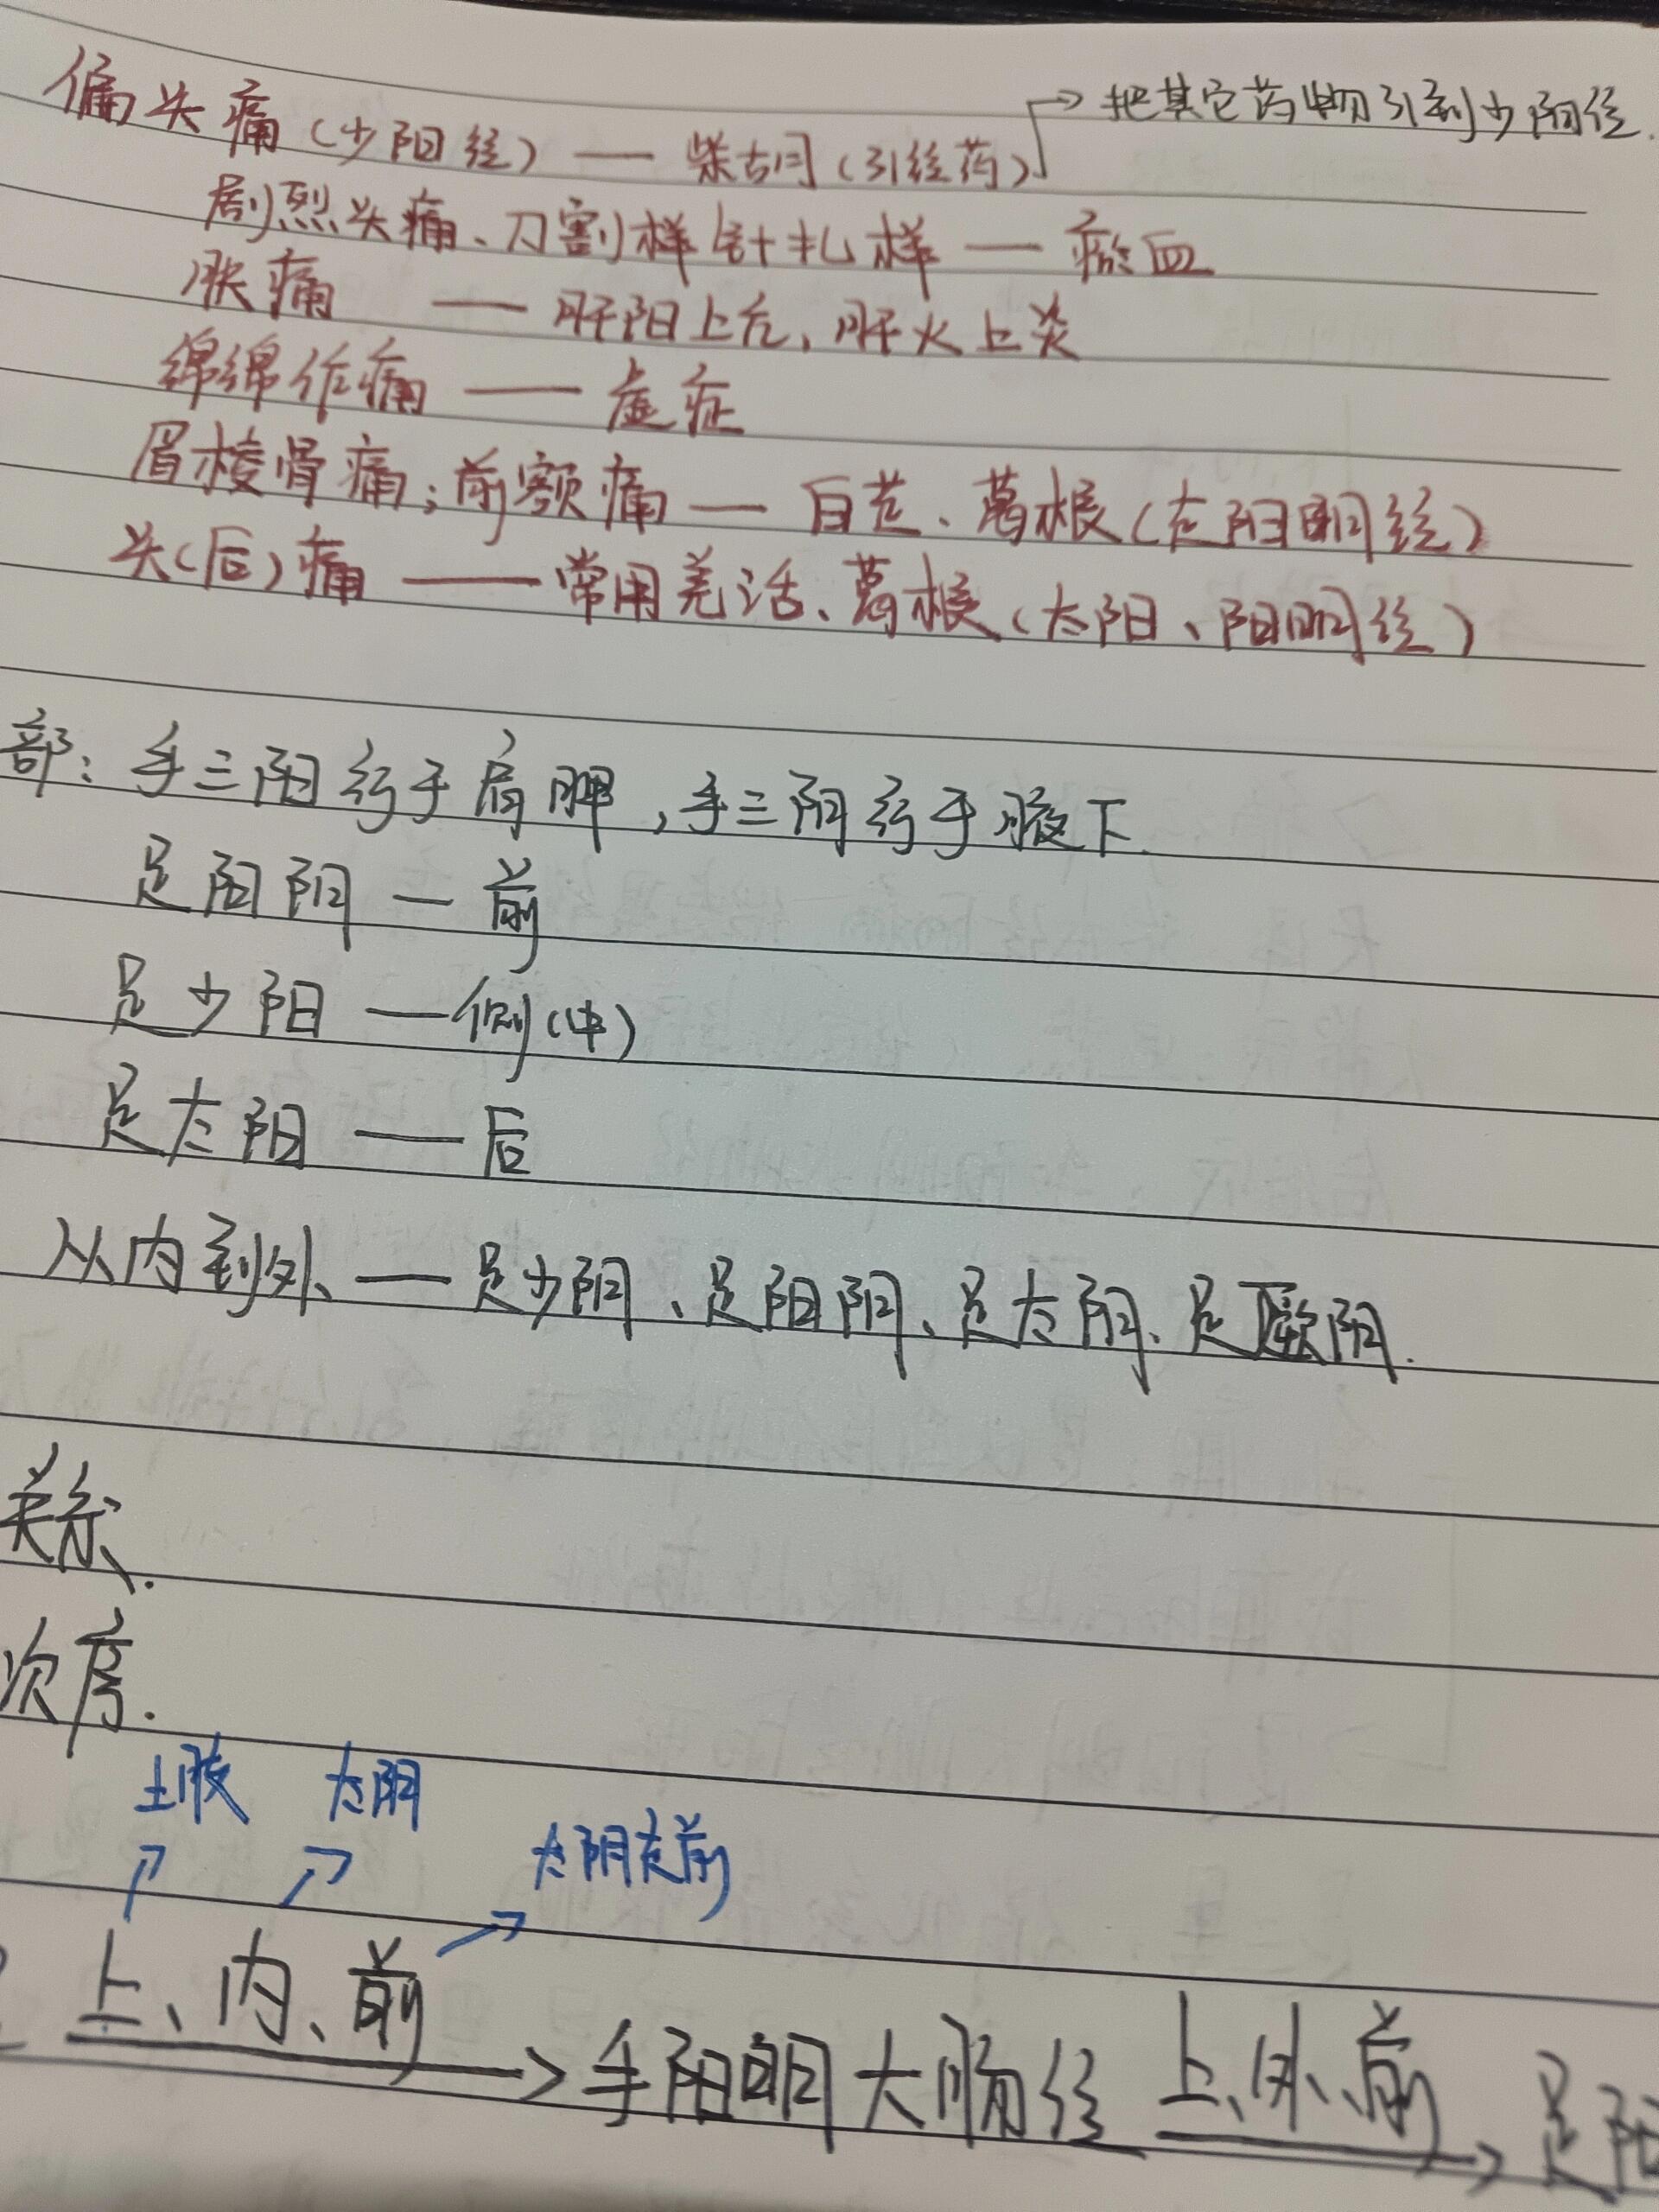 把其它药物引到少阳经.
偏头痛(少阳经) — 柴胡(引经药)
剧烈头痛、刀割样针扎样 — 瘀血
胀痛 — 肝阳上亢, 肝火上炎
绵绵作痛 — 虚症
眉棱骨痛;前额痛 — 白芷、葛根(在阳明经)
头(后)痛 — 常用羌活、葛根(太阳、阳明经)
部: 手三阳行于肩胛,手三阴行于腋下.
足阳阴 — 前
足少阳 — 侧(中)
足太阳 — 后
从内到外 — 足少阴、足阳阴、足太阴、足厥阴.
关系.
次序.
上肢 太阴
太阴在前
上、内、前 手阳明大肠经 上、外、前 足阳